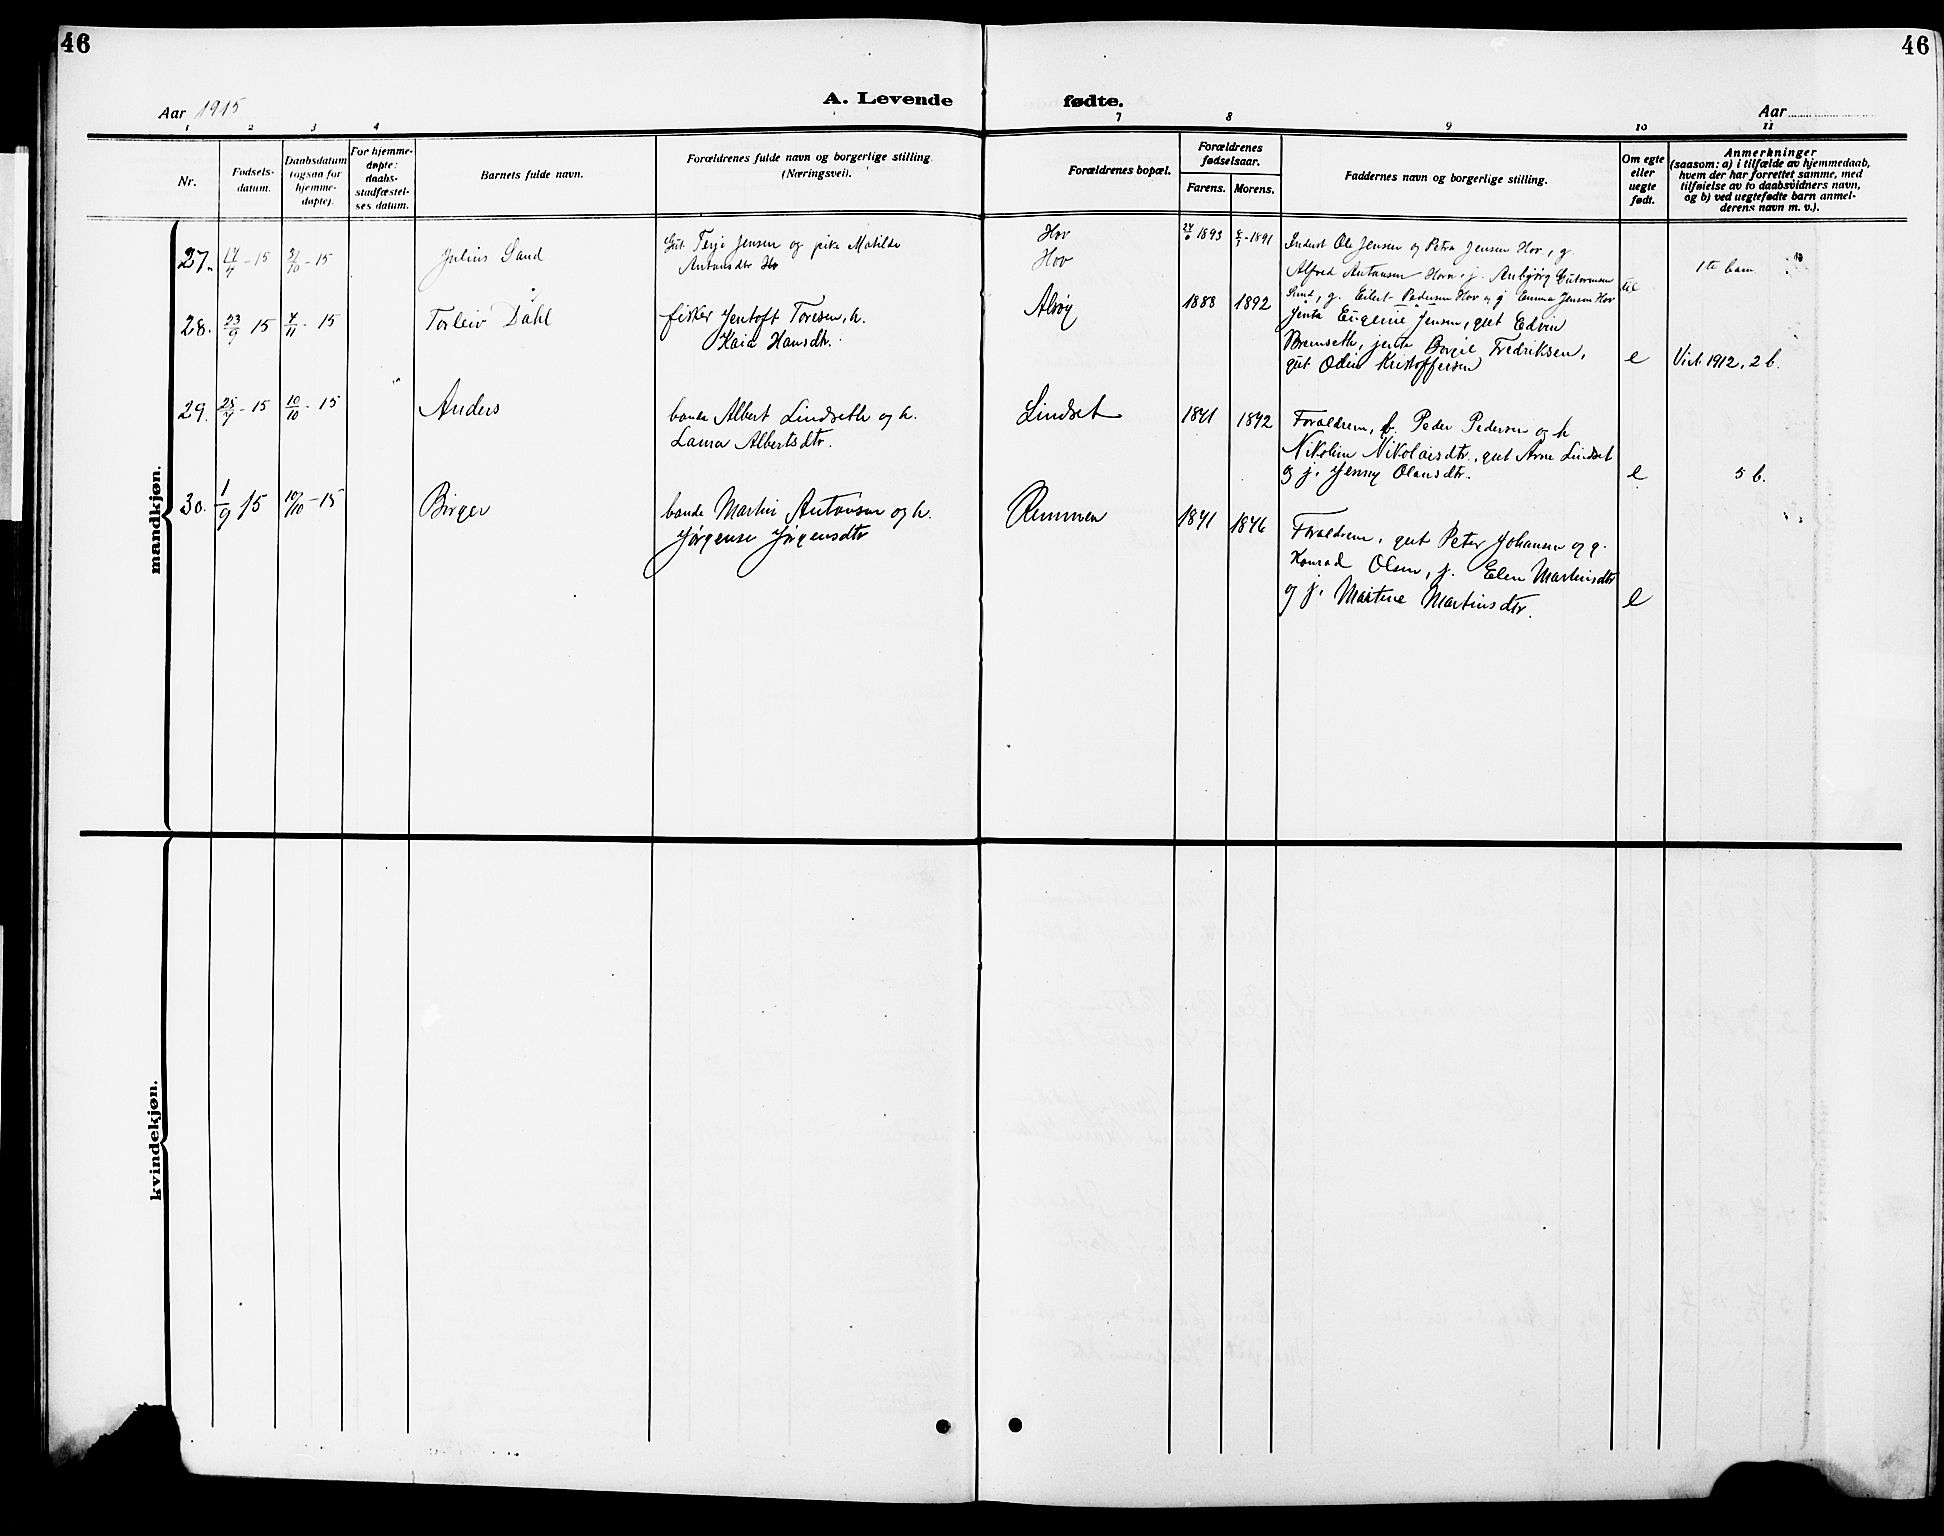 46
46
Aar 1915
A. Levende
fødte.
Aar
1 2 3 4 7 8 9 10 11
Nr.
Fødsels-
datum.
Daabsdatum
(ogsaa for
hjemme-
døpte).
For hjemme-
døpte:
daabs-
stadfæstel-
ses datum.
Barnets fulde navn.
Forældrenes fulde navn og borgerlige stilling.
(Næringsvei).
Forældrenes bopæl.
Forældrenes
fødselsaar.
Farens. Morens.
Faddernes navn og borgerlige stilling.
Om egte
eller
uegte
født.
Anmerkninger
(saasom: a) i tilfælde av hjemmedaab,
hvem der har forrettet samme, med
tilføielse av to daabsvidners navn,
og b) ved uegtefødte barn anmel-
derens navn m. v.).
mandkjøn.
27. 15 31/10 - 15
Julius Sand
Gut Terje Jensen og pike Matilde
Antonsdtr Hov
Hov
Hov
1893 1891
Inderst Ole Jensen og Petra Jensen Hov, g.
Alfred Antonsen Hovn, j. Anbjørg Gutormsen
Sund, g. Eilert Pedersen Hov og j Emma Jensen Hov
1te barn
28. 23/9 15 7/11 - 15
Torleiv Dahl
fisker Jentoft Toresen, h.
Kaia Hansdtr.
Alvøy
1888 1892
Jenta Eugenie Jensen, gut Edvin
Bremseth, jenta Borgil Fredriksen,
gut Odin Kristoffersen
e
Viet 1912, 2 b.
29. 15 10/10 - 15
Anders
bonde Albert Lindseth og h.
Laura Albertsdtr.
Lindset
1871 1872
Forældrene, f. Peder Pedersen og h
Nikoline Nikolaisdtr., gut Arne Lindset
og j. Jenny Olausdtr.
e
5 b.
30. 1/9 15 10/10 - 15
Birger
bonde Martin Antonsen og h.
Jørgense Jørgensdtr
Remmen
1871 1876
Forældrene, gut Peter Johansen og g.
Konrad Olsen, j. Elen Martinsdtr
og j. Martine Martinsdtr.
e
kvindekjøn.